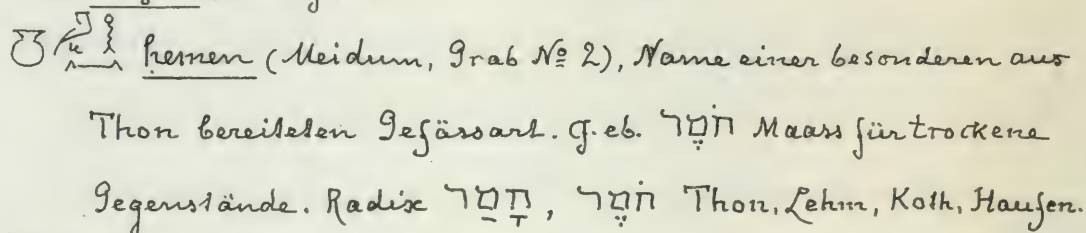 ḥemen (Meidum, Grab № 2), Name einer besonderen aus
Thon bereiteten Gefässart. Cf. eb. חֹמֶר Maass für trockene
Gegenstände. Radix חָמַר, חֹמֶר Thon, Lehm, Koth, Haufen.